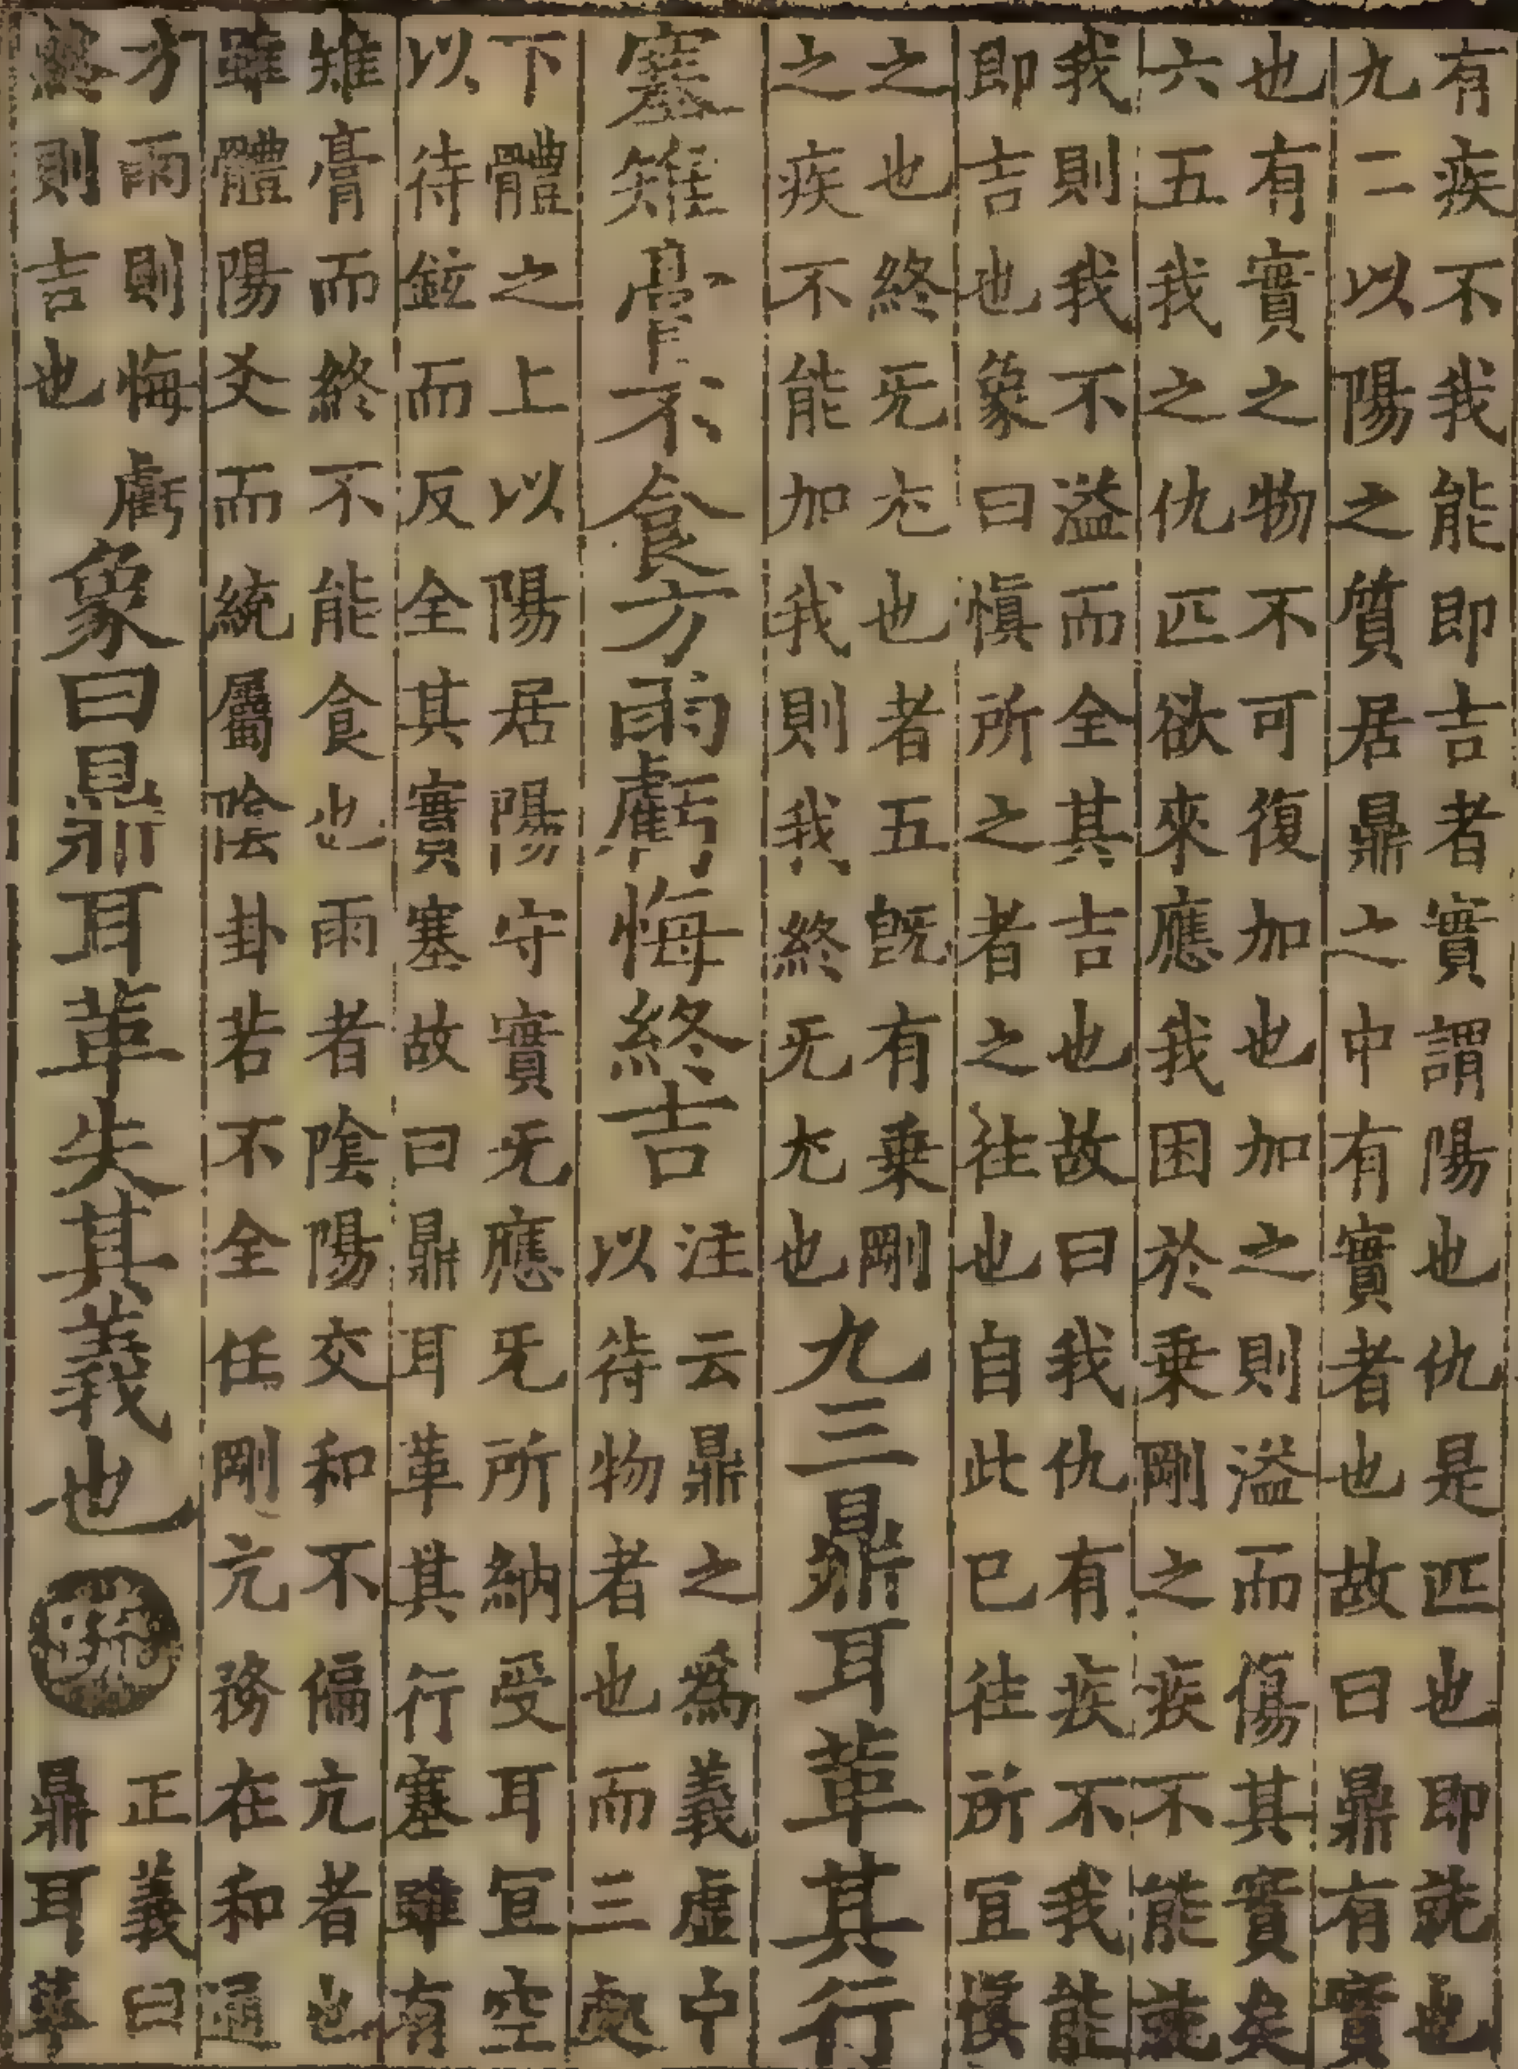 有疾不我能即吉者實謂陽也仇是匹也即就也
九二以陽之質居鼎之中有實者也故曰鼎有實
也有實之物不可復加也加之則溢而傷其實矣
六五我之仇匹欲來應我困於乗剛之疾不能就
我則我不溢而全其吉也故曰我仇有疾不我能
即吉也象曰慎所之者之往也自此已往所宜慎
之也終无尤也者五旣有乗剛
之疾不能加我則我終无尤也
九三鼎耳革其行
塞雉膏不食方雨虧悔終吉
注云鼎之爲義虛中
以待物者也而三處
下體之上以陽居陽守實无應无所納受耳宜空
以待鉉而反全其實塞故曰鼎耳革其行塞雖有
雉膏而終不能食也雨者陰陽交和不偏亢者也
雖體陽爻而統屬陰卦若不全任剛亢務在和通
方雨則悔虧
終則吉也
象曰鼎耳革失其義也
正義曰
鼎耳革